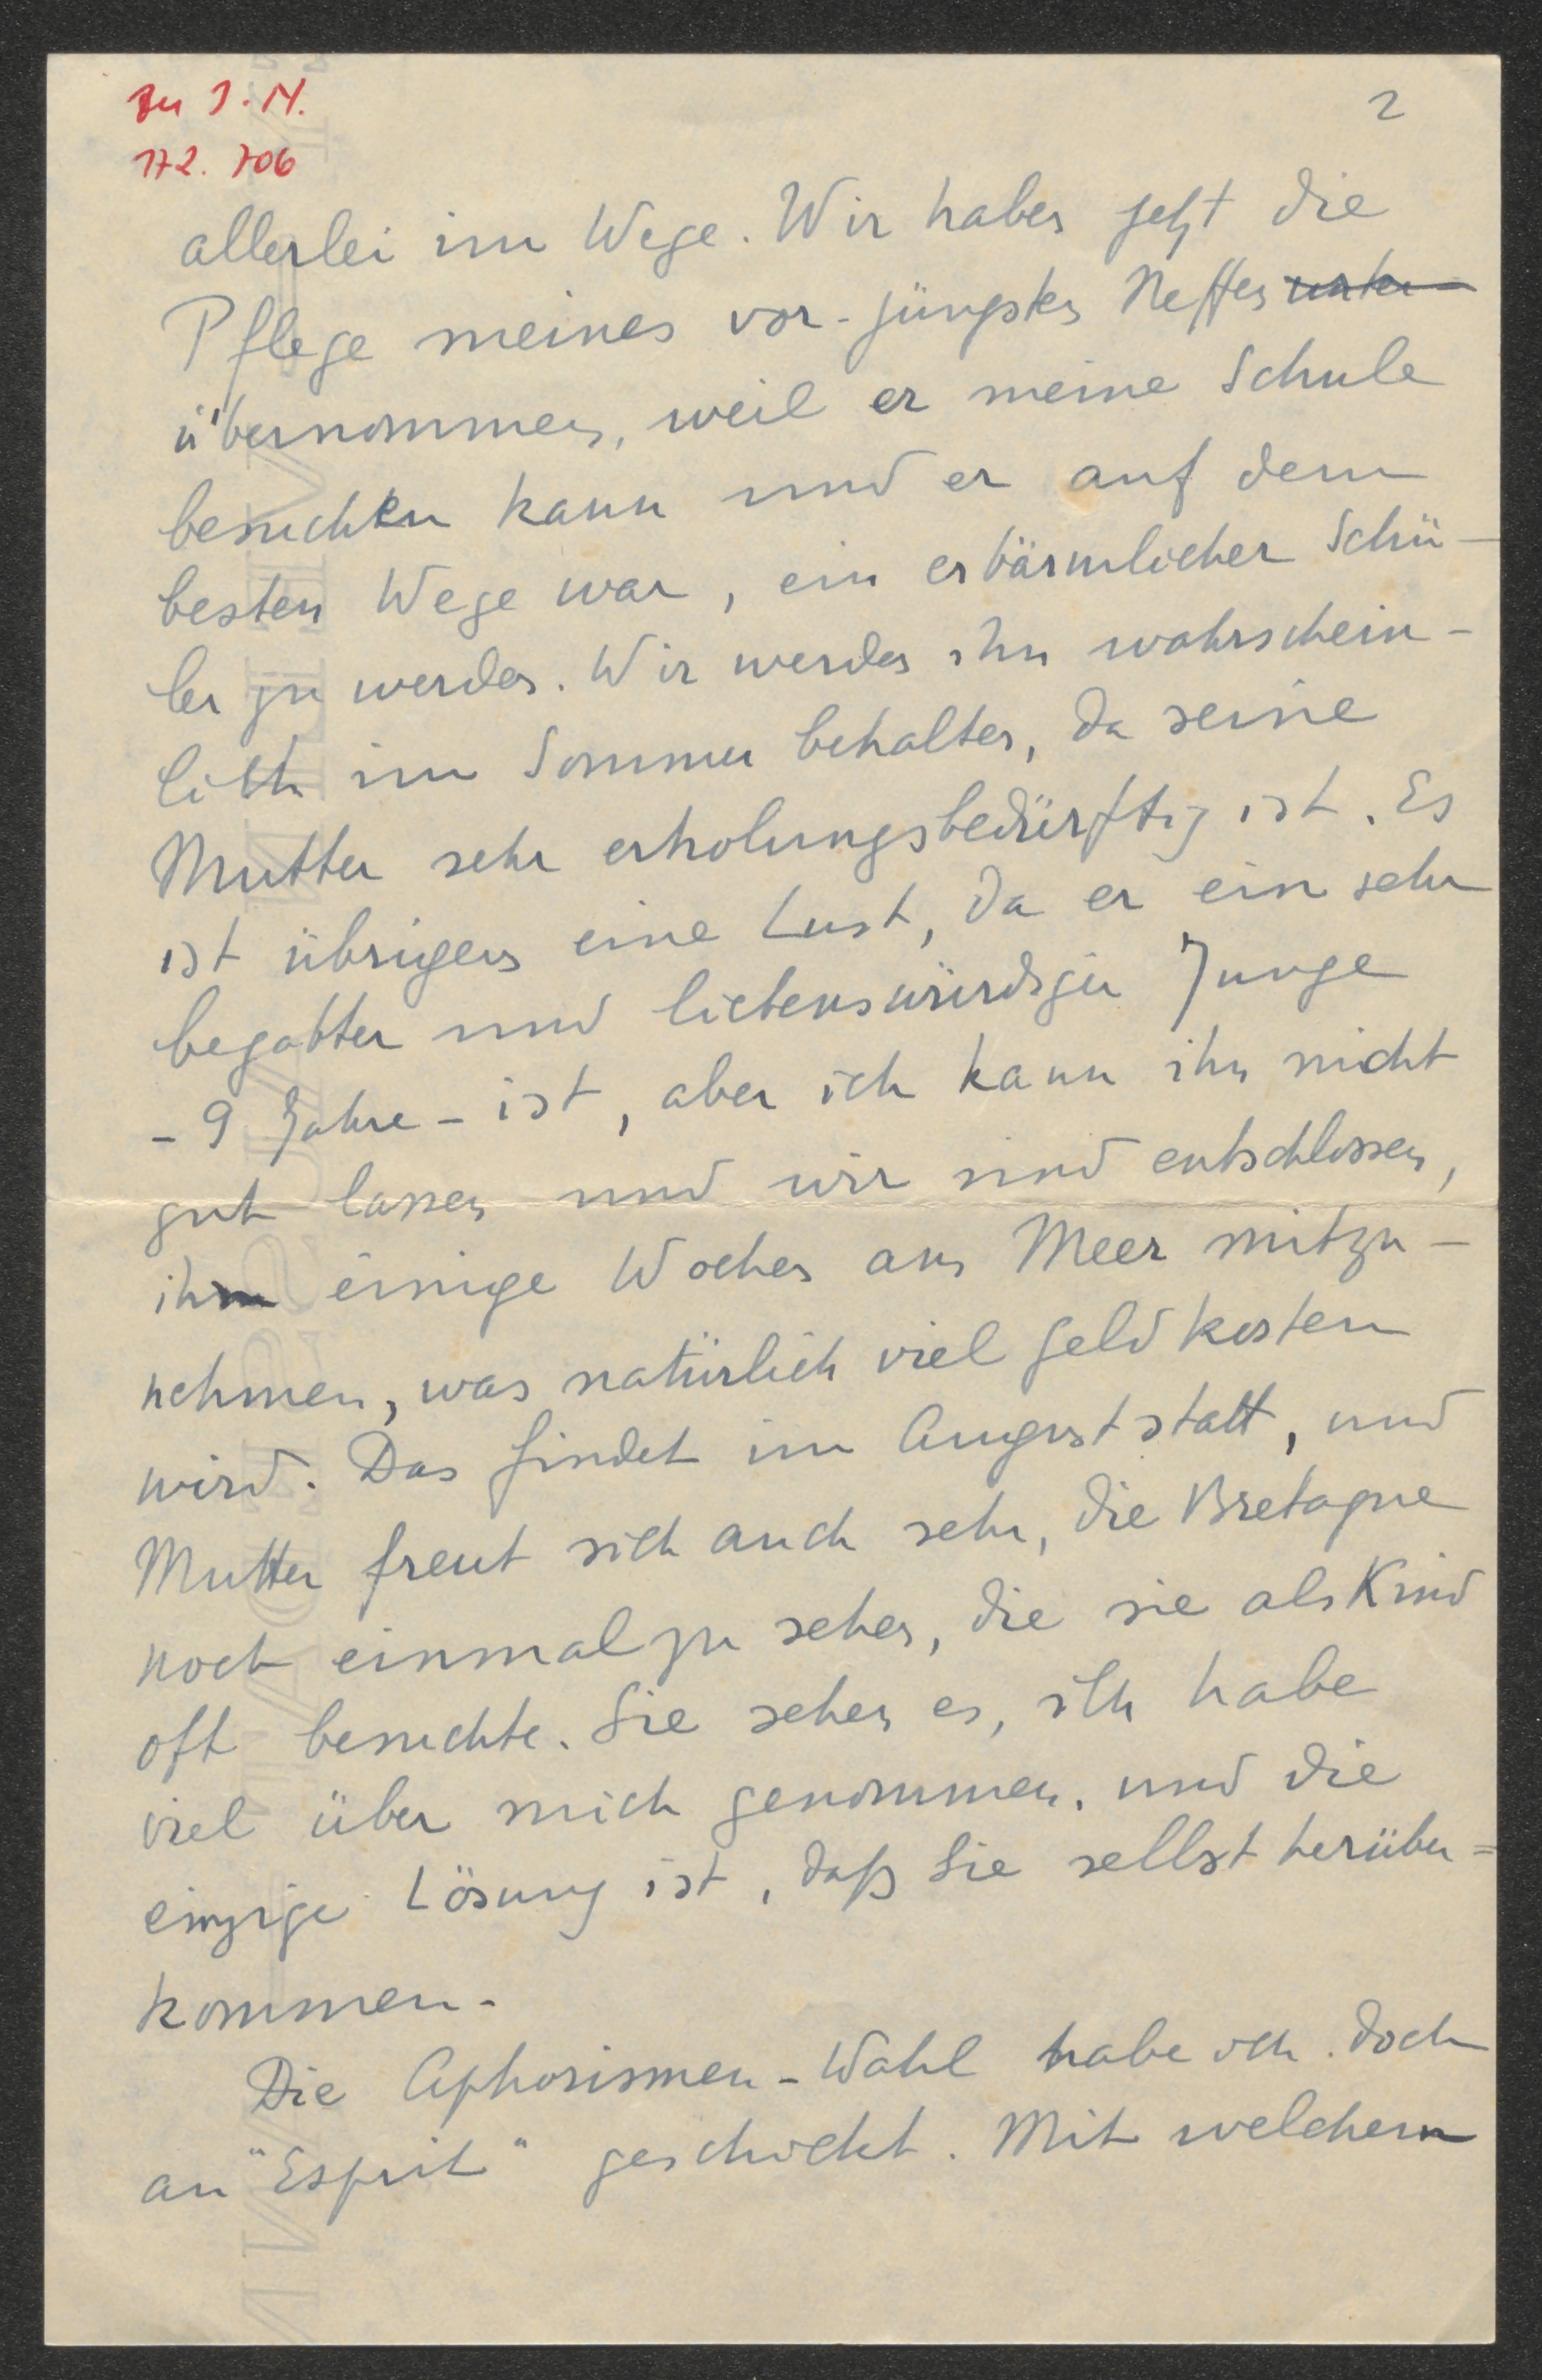 zu I.N.
172.706
2
allerlei im Wege. Wir haben jetzt die
Pflege meines vor-jüngsten Neffen unter
übernommen, weil er meine Schule
besuchen kann und er auf dem
besten Wege war, ein erbärmlicher Schü-
ler zu werden. Wir werden ihn wahrschein-
lich im Sommer behalten, da seine
Mutter sehr erholungsbedürftig ist. Es
ist übrigens eine Lust, da er ein sehr
begabter und liebenswürdiger Junge
- 9 Jahre - ist, aber ich kann ihn nicht
gut lassen und wir sind entschlossen,
ihn einige Wochen ans Meer mitzu-
nehmen, was natürlich viel Geld kosten
wird. Das findet im August statt, und
Mutter freut sich auch sehr, die Bretagne
noch einmal zu sehen, die sie als Kind
oft besuchte. Sie sehen es, ich habe
viel über mich genommen, und die
einzige Lösung ist, daß Sie selbst herüber=
kommen.
Die Aphorismen-Wahl habe ich doch
an "Esprit" geschickt. Mit welchem